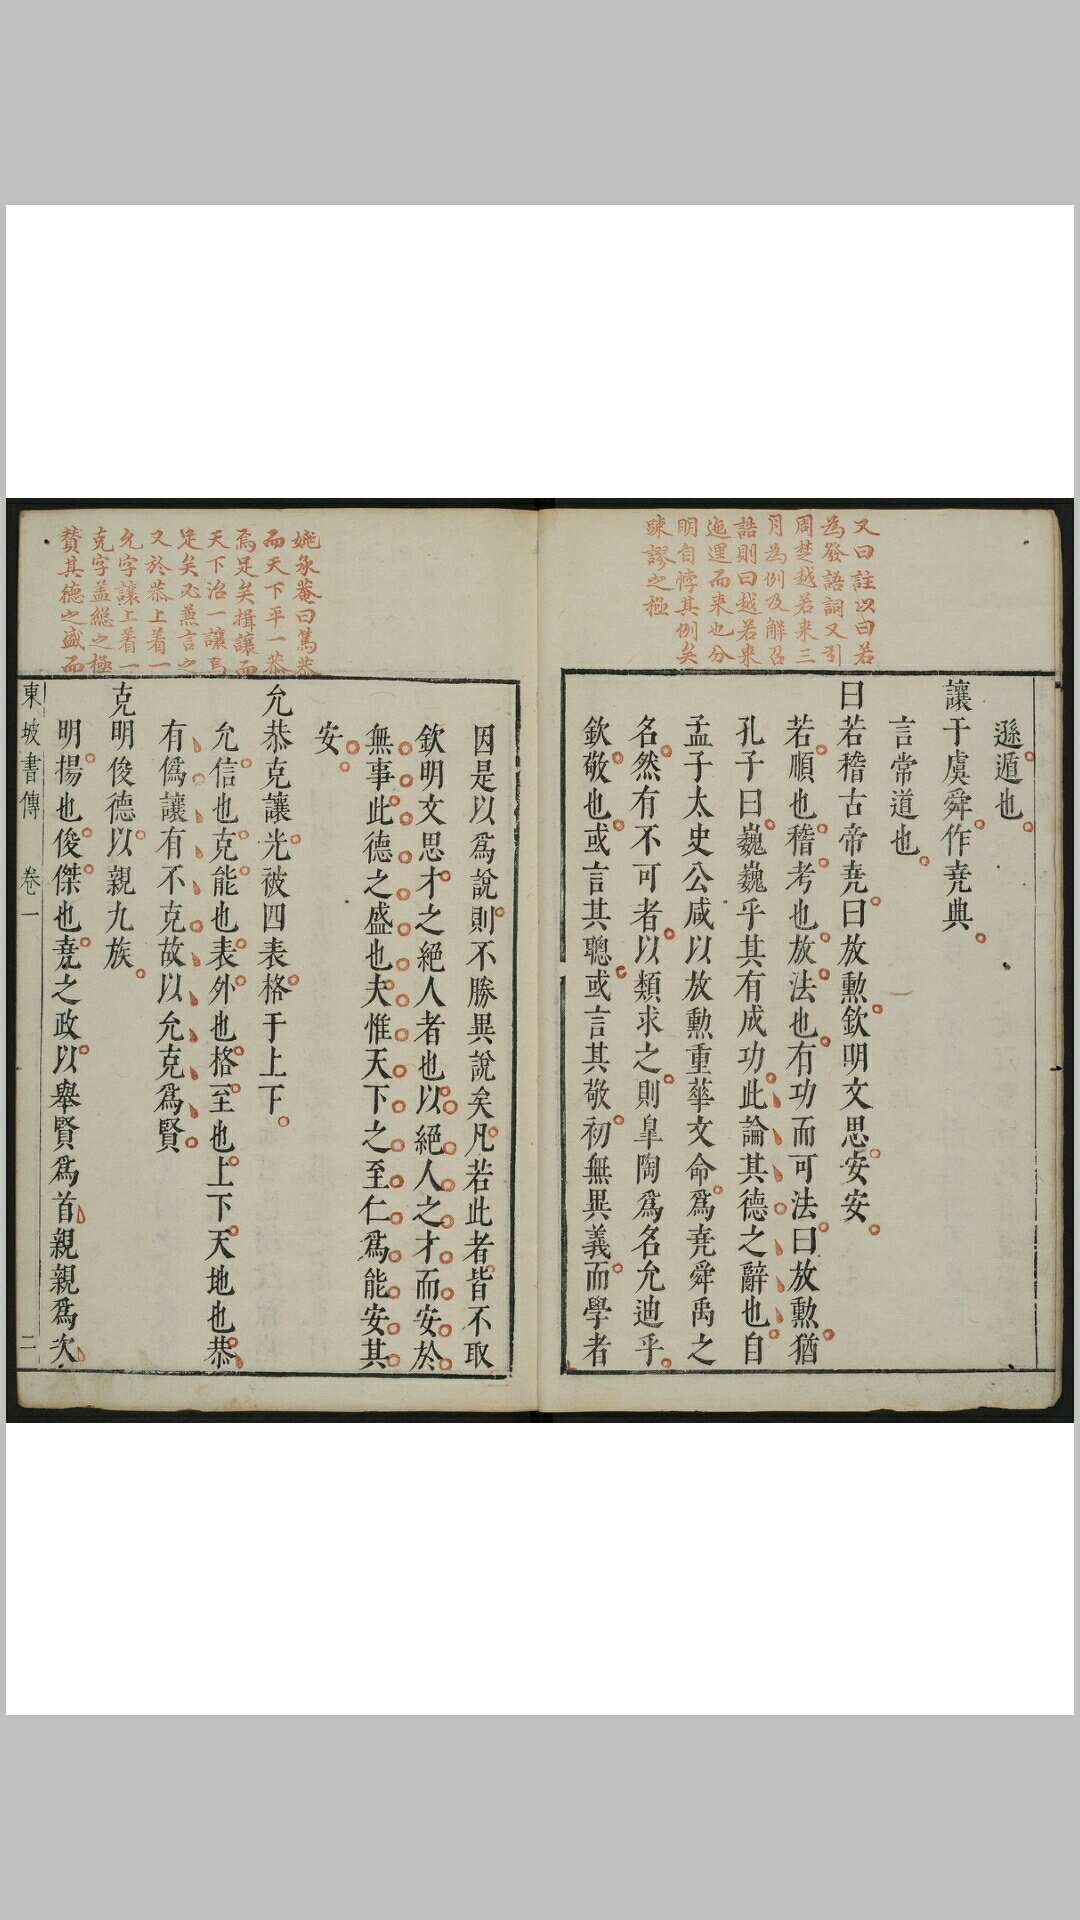 又曰註以曰若
為發語詞又引
周楚越若来三
月為例及解召
誥則曰越若来
迤邐而来也分
明自悖其例矣
疎謬之極
遜遁也
讓于虞舜作堯典
言常道也
曰若稽古帝堯曰放勲欽明文思安安
若順也稽考也放法也有功而可法曰放勲猶
孔子曰巍巍乎其有成功此論其德之辭也自
孟子太史公咸以放勲重華文命爲堯舜禹之
名然有不可者以類求之則臯陶爲名允迪乎
欽敬也或言其聰或言其敬初無異義而學者
姚承菴曰篤恭
而天下平一恭
焉足矣揖讓而
天下治一讓焉
足矣必兼言之
又於恭上着一
允字讓上着一
克字盖總之極
賛其德之盛而
因是以爲說則不勝異說矣凡若此者皆不取
欽明文思才之絕人者也以絕人之才而安於
無事此德之盛也夫惟天下之至仁爲能安其
安
允恭克讓光被四表格于上下
允信也克能也表外也格至也上下天地也恭
有僞讓有不克故以允克爲賢
克明俊德以親九族
明揚也俊傑也堯之政以舉賢爲首親親爲次
東坡書傳 卷一 二